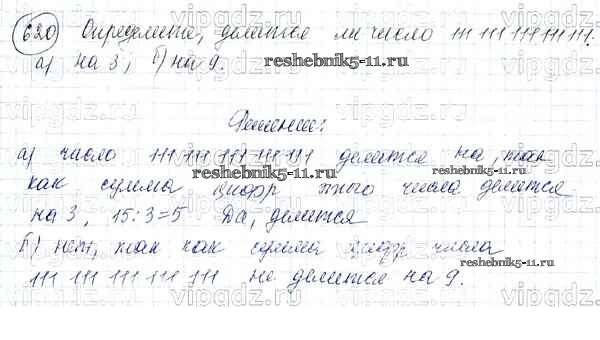 620 Определите, делится ли число 111 111 111 111 111.
а) на 3; б) на 9.
reshebnik5-11.ru
Решение:
а) число 111 111 111 111 111 делится на, так
как сумма цифр этого числа делится
reshebnik5-11.ru
на 3, 15:3=5 Да, делится
б) нет, так как сумма цифр числа
reshebnik5-11.ru
111 111 111 111 111 не делится на 9.
vipgdz.ru